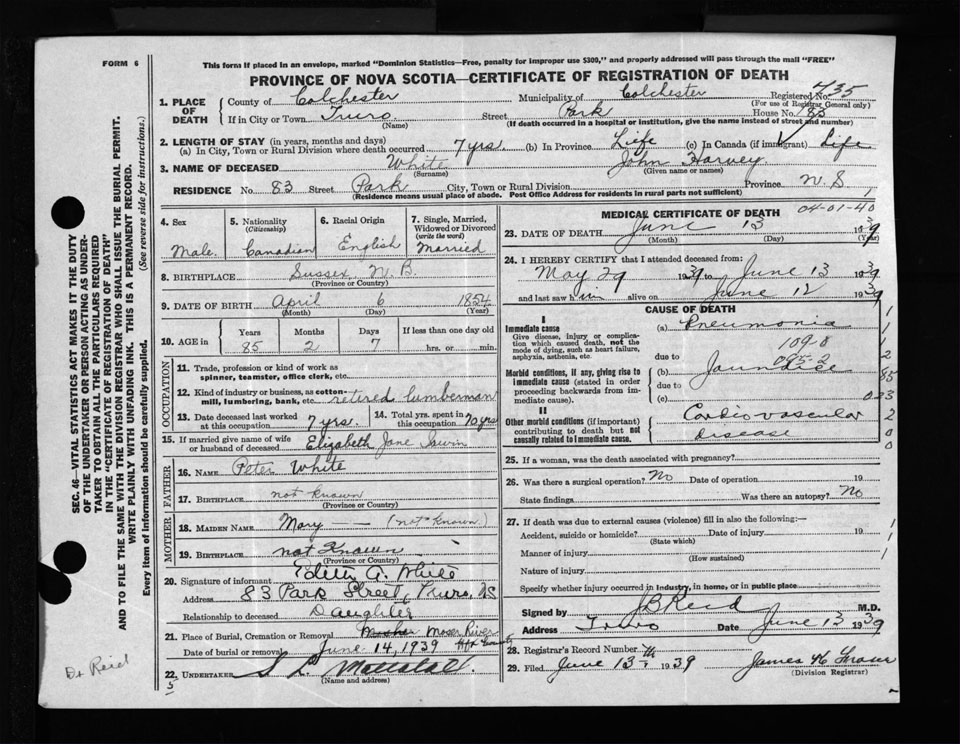 FORM 6
This form if placed in an envelope, marked "Dominion Statistics—Free, penalty for improper use $300," and properly addressed will pass through the mail "FREE"
PROVINCE OF NOVA SCOTIA—CERTIFICATE OF REGISTRATION OF DEATH
Registered No. 435
(For use of Registrar General only)
1. PLACE OF DEATH County of Colchester Municipality of Colchester
If in City or Town Truro (Name) Street Park House No. 83
(If death occurred in a hospital or institution, give the name instead of street and number)
2. LENGTH OF STAY (in years, months and days)
(a) In City, Town or Rural Division where death occurred 7 yrs. (b) In Province Life (c) In Canada (if immigrant) Life
3. NAME OF DECEASED White John Harvey
(Surname) (Given name or names)
RESIDENCE No. 83 Street Park City, Town or Rural Division Province N.S.
(Residence means usual place of abode. Post Office Address for residents in rural parts not sufficient)
4. Sex Male.
5. Nationality (Citizenship) Canadian
6. Racial Origin English
7. Single, Married, Widowed or Divorced (write the word) Married
8. BIRTHPLACE Sussex, N.B.
(Province or Country)
9. DATE OF BIRTH April 6 1854
(Month) (Day) (Year)
10. AGE in Years 85 Months 2 Days 7 If less than one day old hrs. or min.
OCCUPATION
11. Trade, profession or kind of work as spinner, teamster, office clerk, etc.
12. Kind of industry or business, as cotton mill, lumbering, bank, etc. retired lumberman
13. Date deceased last worked at this occupation 7 yrs.
14. Total yrs. spent in this occupation 70 yrs
15. If married give name of wife or husband of deceased Elizabeth Jane Irwin
FATHER
16. NAME Peter White
17. BIRTHPLACE not known
(Province or Country)
MOTHER
18. MAIDEN NAME Mary — (not known)
19. BIRTHPLACE not known
(Province or Country)
20. Signature of informant Edith A. White
Address 83 Park Street, Truro, NS
Relationship to deceased Daughter
21. Place of Burial, Cremation or Removal Moser River Hfx County
Date of burial or removal June 14, 1939
22. UNDERTAKER
(Name and address)
5
MEDICAL CERTIFICATE OF DEATH 04-01-40
23. DATE OF DEATH June 13 1939
(Month) (Day) (Year)
24. I HEREBY CERTIFY that I attended deceased from:
May 29 1939 to June 13 1939
and last saw him alive on June 12 1939
CAUSE OF DEATH
I
Immediate cause
Give disease, injury or complication which caused death, not the mode of dying, such as heart failure, asphyxia, asthenia, etc.
(a) Pneumonia
109-0
due to
095-2
Morbid conditions, if any, giving rise to immediate cause (stated in order proceeding backwards from immediate cause).
(b) Jaundice
due to
(c)
II
Other morbid conditions (if important) contributing to death but not causally related to immediate cause.
Cardiovascular
Disease
25. If a woman, was the death associated with pregnancy?
26. Was there a surgical operation? No Date of operation 19
State findings Was there an autopsy? No
27. If death was due to external causes (violence) fill in also the following:—
Accident, suicide or homicide? Date of injury 19
(State which)
Manner of injury
(How sustained)
Nature of injury
Specify whether injury occurred in industry, in home, or in public place
Signed by J B Reid M.D.
Address Truro Date June 13 1939
28. Registrar's Record Number
29. Filed June 13th 1939
(Division Registrar)
SEC. 46—VITAL STATISTICS ACT MAKES IT THE DUTY
OF THE UNDERTAKER OR PERSON ACTING AS UNDER-
TAKER TO OBTAIN ALL THE PARTICULARS REQUIRED
IN THE "CERTIFICATE OF REGISTRATION OF DEATH"
AND TO FILE THE SAME WITH THE DIVISION REGISTRAR WHO SHALL ISSUE THE BURIAL PERMIT.
WRITE PLAINLY WITH UNFADING INK. THIS IS A PERMANENT RECORD.
Every item of information should be carefully supplied. (See reverse side for instructions.)
Dr Reid